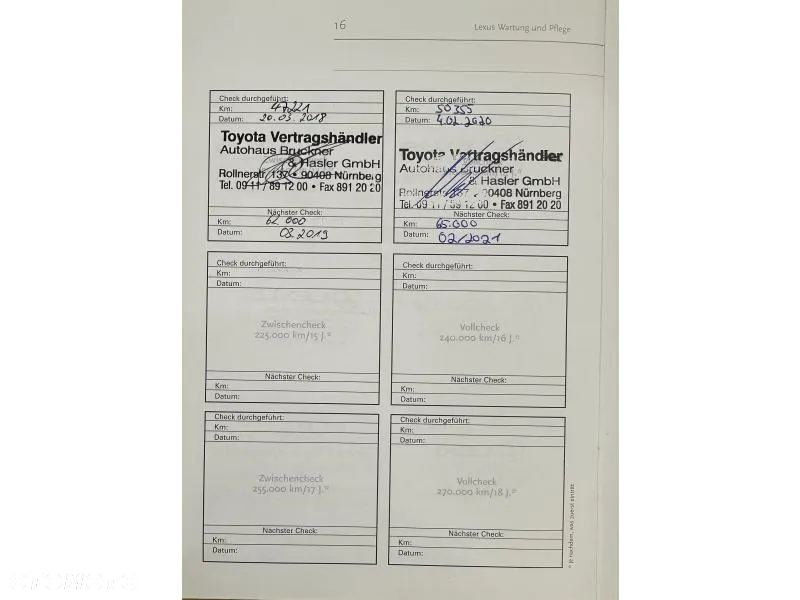 16
Lexus Wartung und Pflege
Check durchgeführt:
Km: 47221
Datum: 20.03.2018
Toyota Vertragshändler
Autohaus Bruckner
& Hasler GmbH
Rollnerstr. 137 • 90408 Nürnberg
Tel. 09 11 / 89 12 00 • Fax 891 20 20
Nächster Check:
Km: 62.000
Datum: 03.2019
Check durchgeführt:
Km: 50355
Datum: 4.02.2020
Toyota Vertragshändler
Autohaus Bruckner
& Hasler GmbH
Rollnerstr. 137 • 90408 Nürnberg
Tel. 09 11 / 89 12 00 • Fax 891 20 20
Nächster Check:
Km: 65.000
Datum: 02/2021
Check durchgeführt:
Km:
Datum:
Zwischencheck
225.000 km/15 J.*
Nächster Check:
Km:
Datum:
Check durchgeführt:
Km:
Datum:
Vollcheck
240.000 km/16 J.*
Nächster Check:
Km:
Datum:
Check durchgeführt:
Km:
Datum:
Zwischencheck
255.000 km/17 J.*
Nächster Check:
Km:
Datum:
Check durchgeführt:
Km:
Datum:
Vollcheck
270.000 km/18 J.*
Nächster Check:
Km:
Datum:
* Je nachdem, was zuerst eintritt